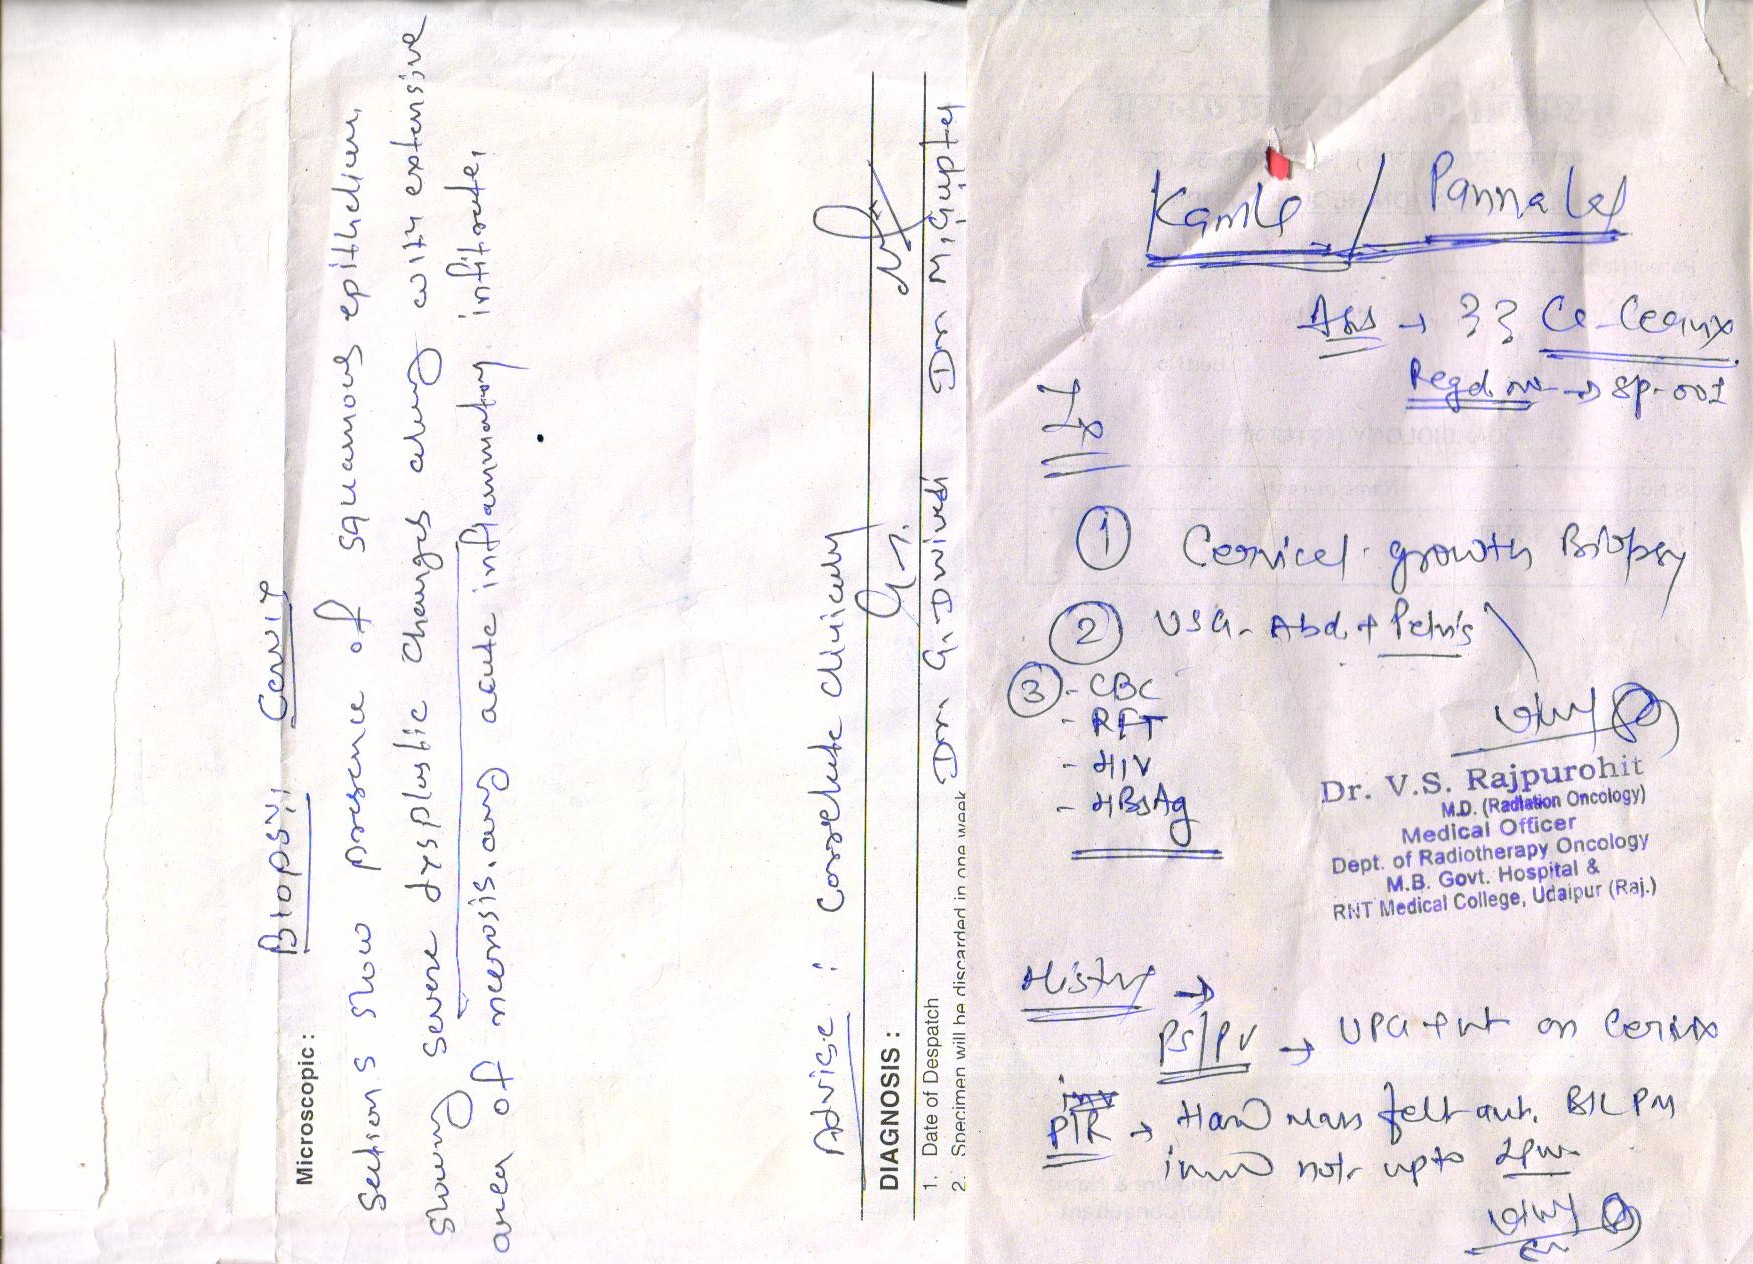 Biopsy, Cervix
Microscopic :
Sections show presence of squamous epithelium
showing severe dysplastic changes along with extensive
area of necrosis and acute inflammatory infiltrate,
Advise : Correlate clinically
DIAGNOSIS :
1. Date of Despatch
2. Specimen will be discarded in one week
Dr G. Dwivedi Dr M. Gupta
Kamle / Pannalal
Ass → ?? Ca-Cervix
Regd no → SP-001
Ix
① Cervical growth Biopsy
② USG - Abd + Pelvis
③ - CBC
- RFT
- HIV
- HBsAg
Dr. V.S. Rajpurohit
M.D. (Radiation Oncology)
Medical Officer
Dept. of Radiotherapy Oncology
M.B. Govt. Hospital &
RNT Medical College, Udaipur (Raj.)
History →
PS/PV → UPG + on Cervix
P/R → Hard mass felt ant. B/L PM
not upto